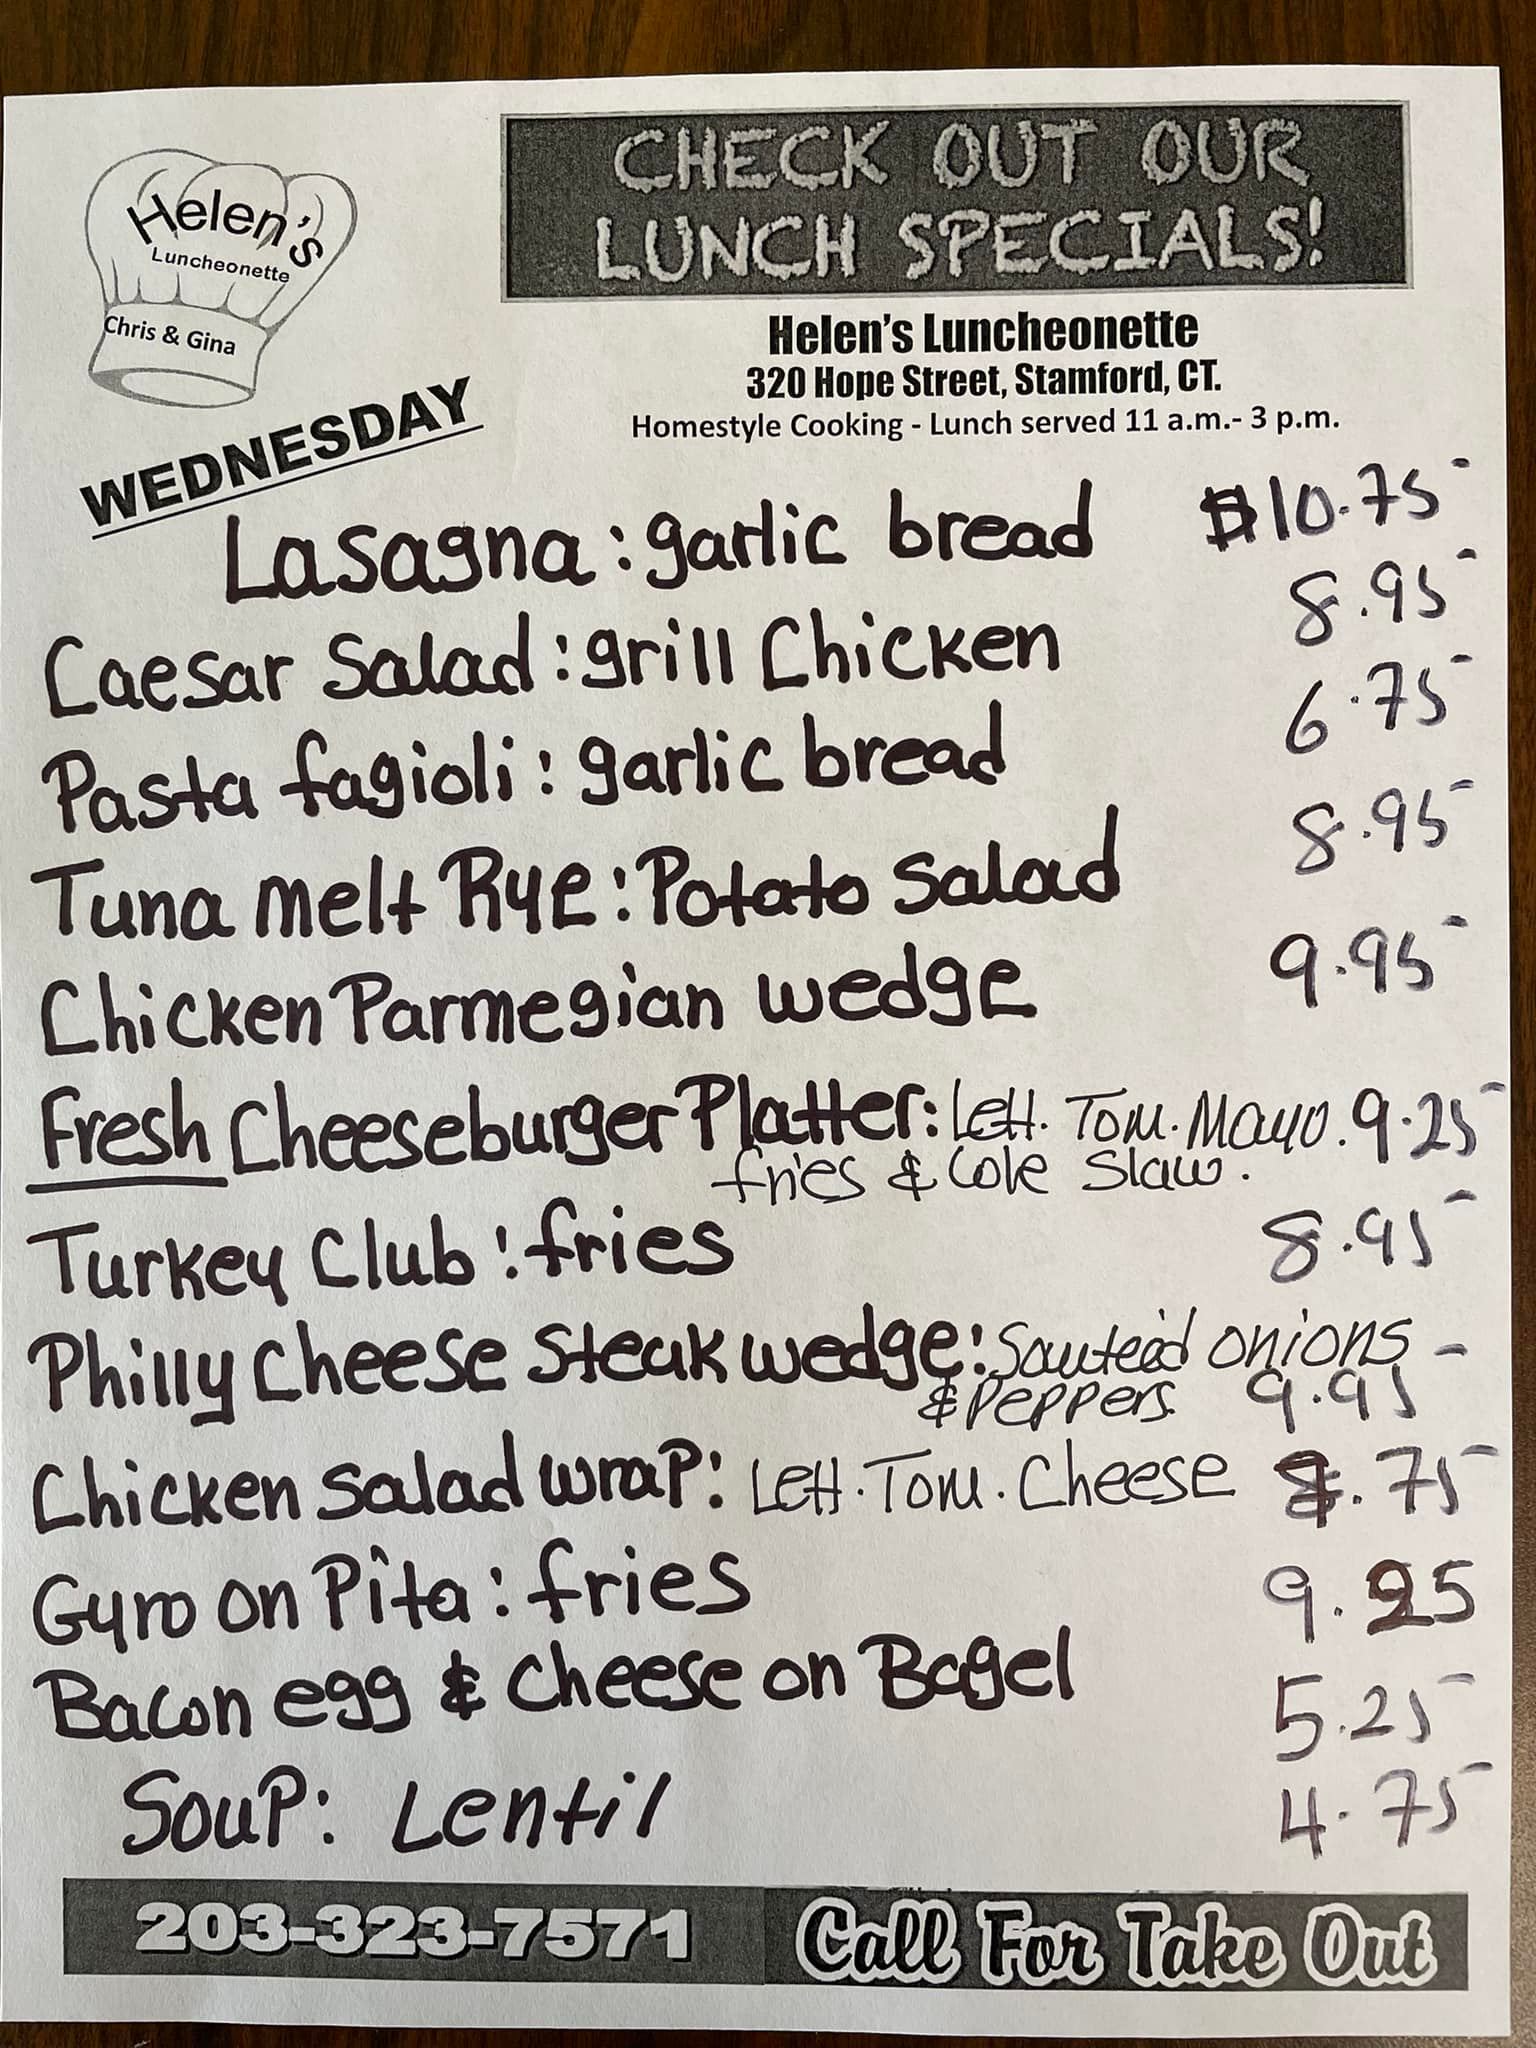 Helen's
Luncheonette
Chris & Gina
CHECK OUT OUR
LUNCH SPECIALS!
Helen's Luncheonette
320 Hope Street, Stamford, CT.
Homestyle Cooking - Lunch served 11 a.m.- 3 p.m.
WEDNESDAY
Lasagna : garlic bread $10.75
Caesar Salad : grill Chicken 8.95
Pasta fagioli : garlic bread 6.75
Tuna melt Rye : Potato Salad 8.95
Chicken Parmegian wedge 9.95
Fresh Cheeseburger Platter: Lett. Tom. Mayo. 9.25
fries & Cole Slaw.
Turkey Club : fries 8.95
Philly Cheese Steak wedge : Sauteéd onions
& Peppers. 9.95
Chicken Salad wrap: Lett. Tom. Cheese .75
Gyro on Pita : fries 9.25
Bacon egg & Cheese on Bagel 5.25
Soup: Lentil 4.75
203-323-7571
Call For Take Out